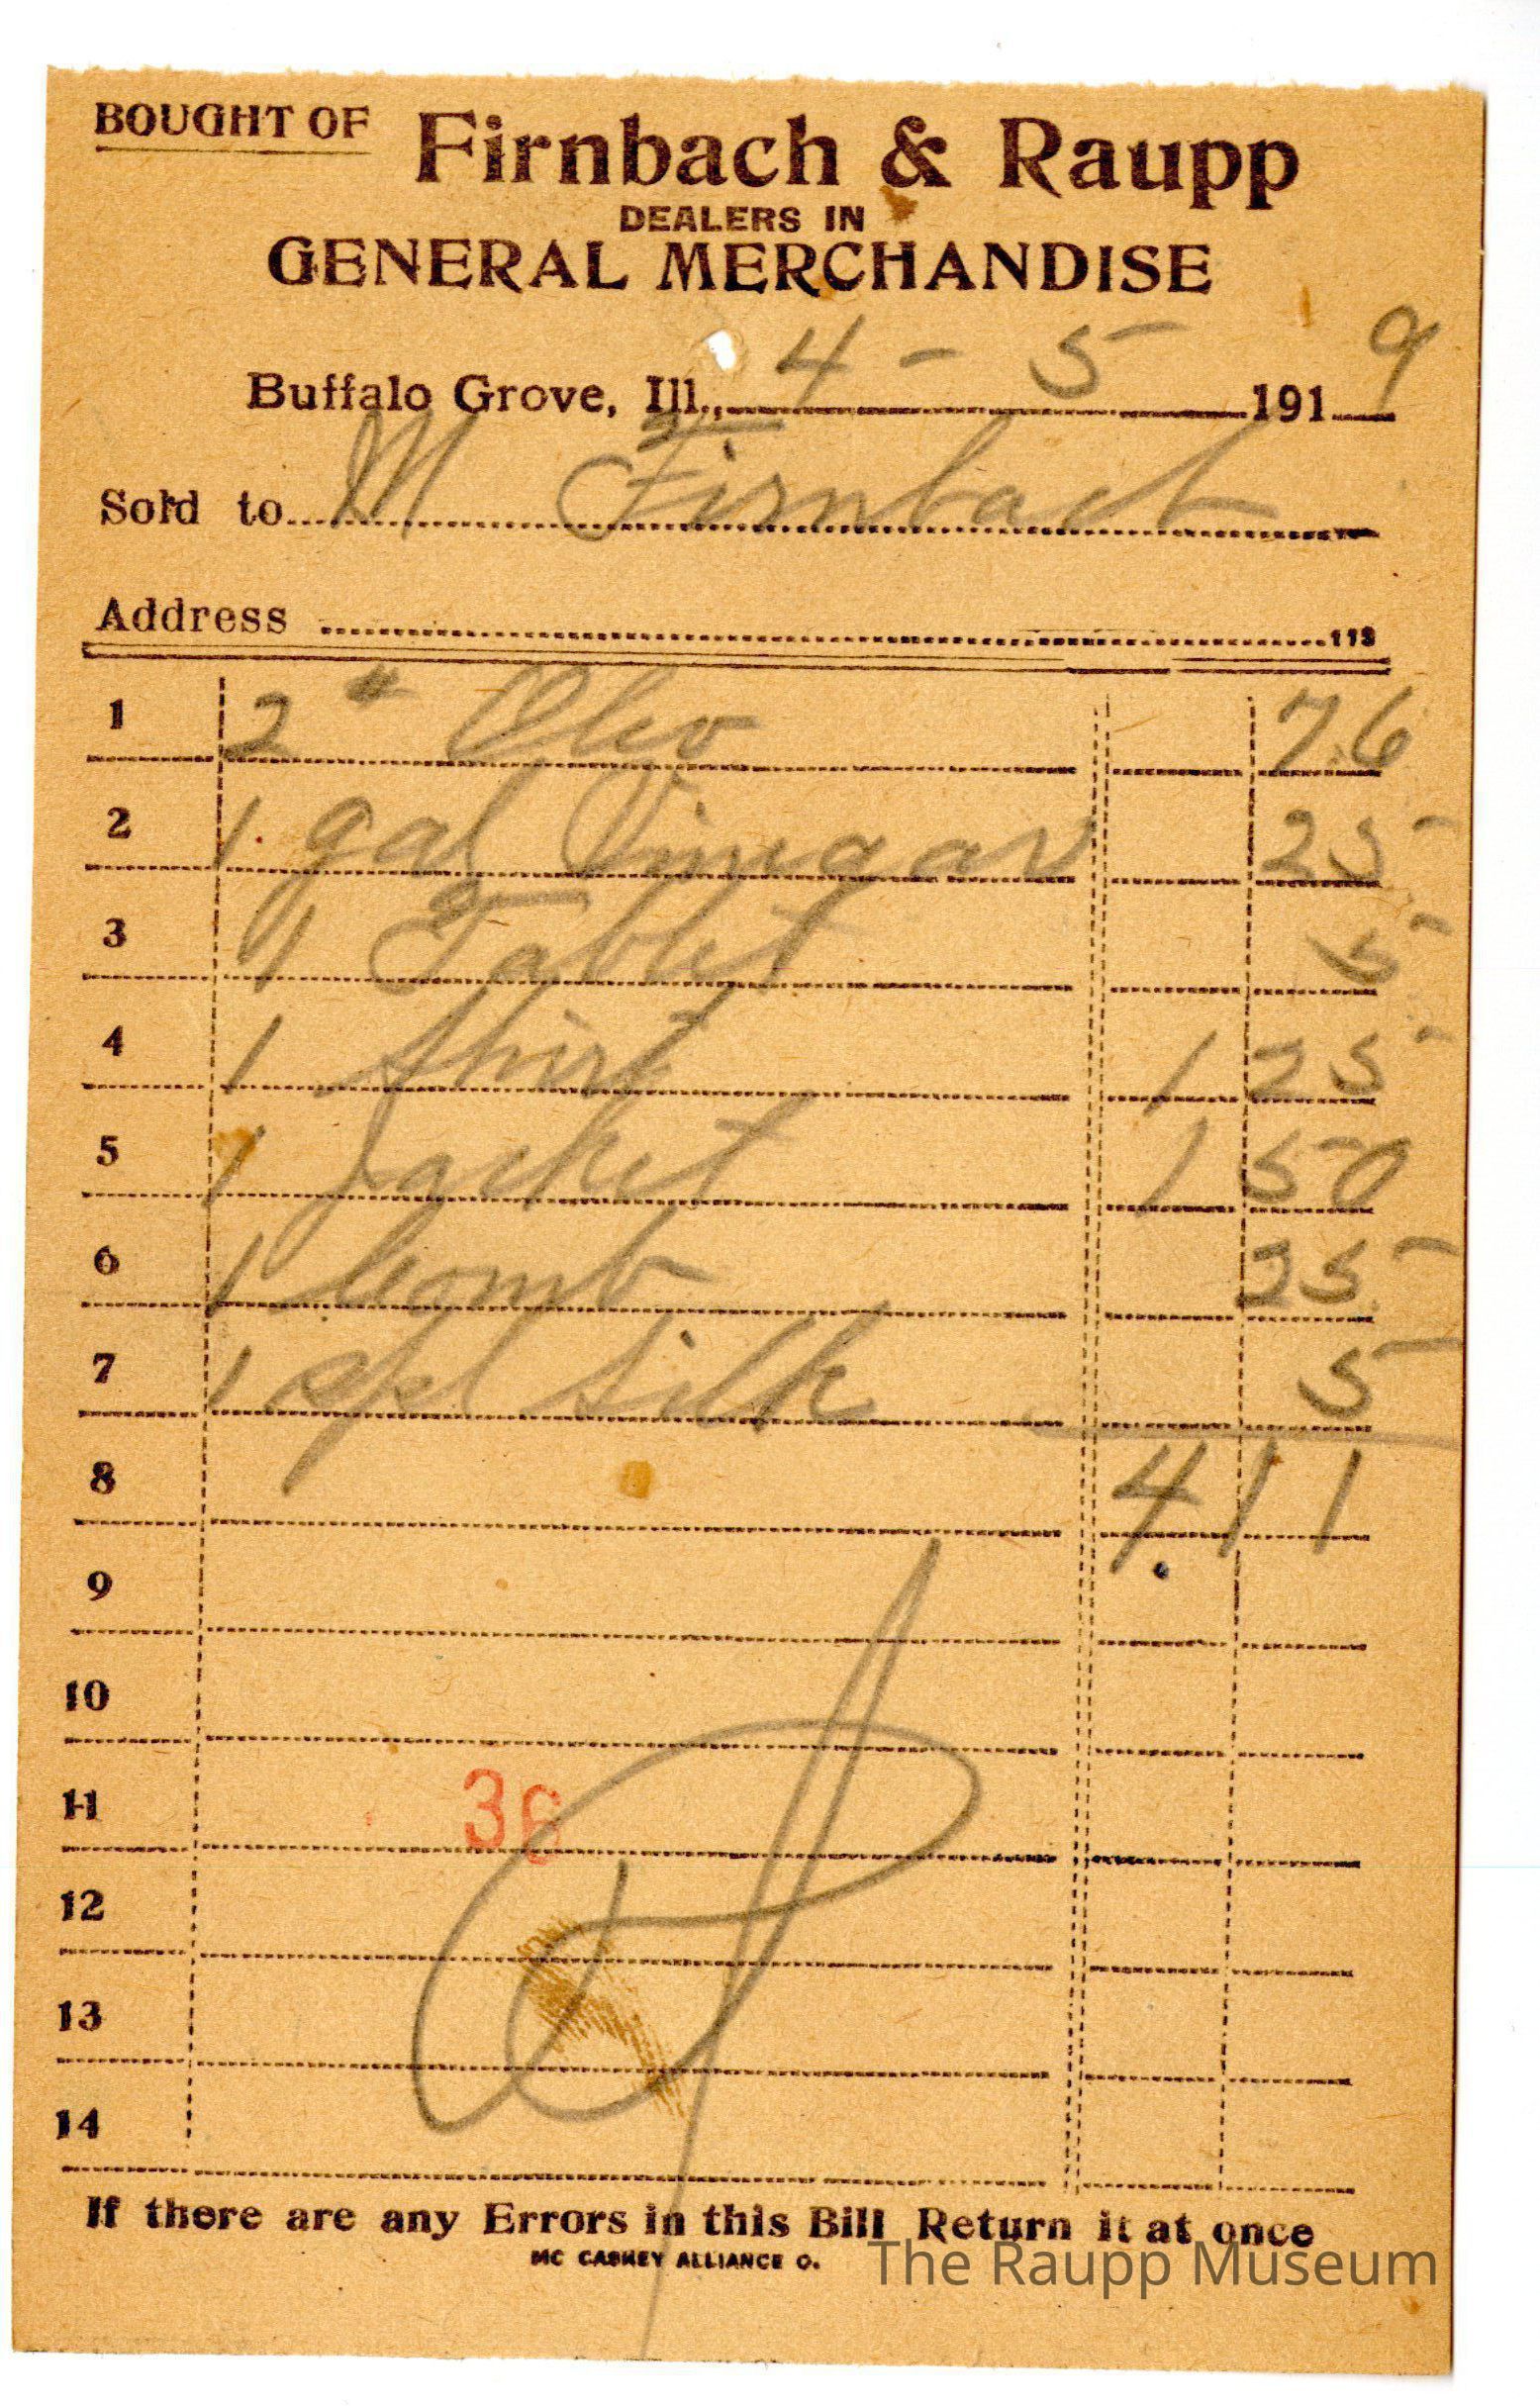 BOUGHT OF Firnbach & Raupp
DEALERS IN
GENERAL MERCHANDISE
Buffalo Grove, Ill., 4 - 5 1919
Sold to M Firnbach
Address 113
1 2 # Oleo 76
2 1 gal Vinegar 25
3 1 Tablet 5
4 1 Shirt 1 25
5 1 Jacket 1 50
6 1 Comb 25
7 1 spl Silk 5
8 4.11
9
10
11 36
12
13
14
If there are any Errors in this Bill Return it at once
MC CASKEY ALLIANCE O.
The Raupp Museum